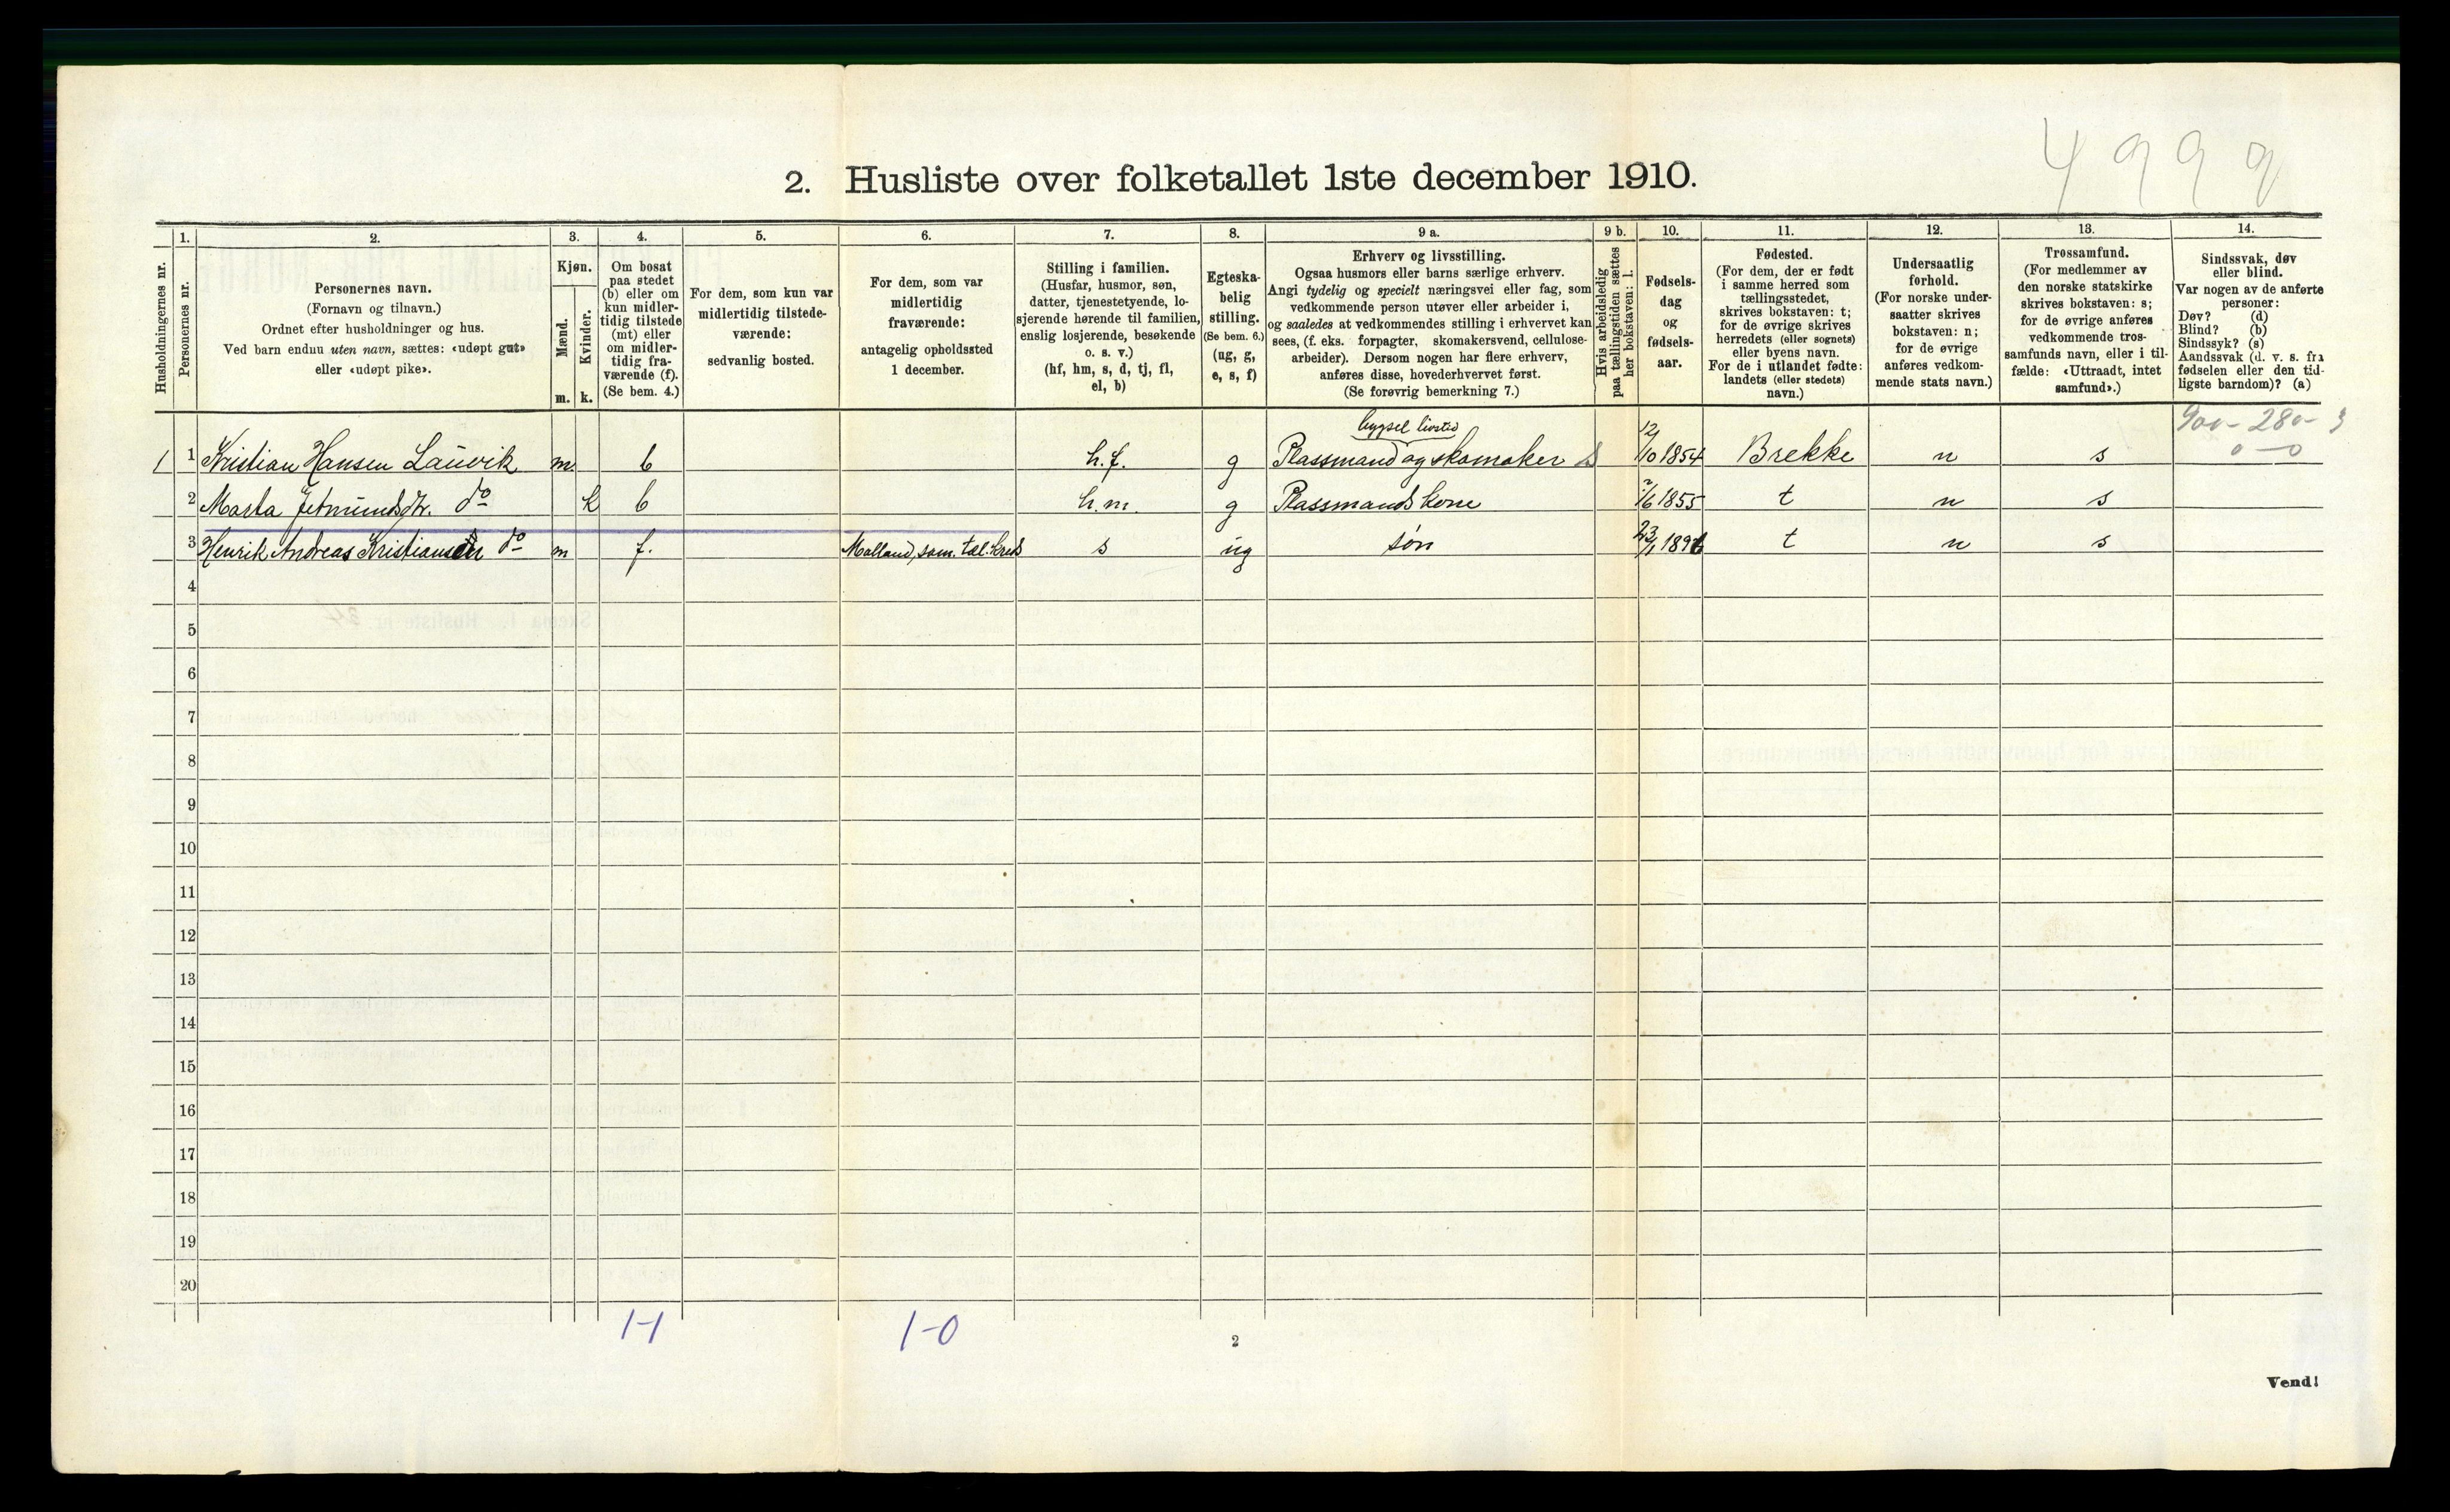 4999
2. Husliste over folketallet 1ste december 1910.
Husholdningernes nr.
1.
Personernes nr.
2.
Personernes navn.
(Fornavn og tilnavn.)
Ordnet efter husholdninger og hus.
Ved barn endnu uten navn, sættes: «udøpt gut»
eller «udøpt pike».
3.
Kjøn.
Mænd.
Kvinder.
m. k.
4.
Om bosat
paa stedet
(b) eller om
kun midler-
tidig tilstede
(mt) eller
om midler-
tidig fra-
værende (f).
(Se bem. 4.)
5.
For dem, som kun var
midlertidig tilstede-
værende:
sedvanlig bosted.
6.
For dem, som var
midlertidig
fraværende:
antagelig opholdssted
1 december.
7.
Stilling i familien.
(Husfar, husmor, søn,
datter, tjenestetyende, lo-
sjerende hørende til familien,
enslig losjerende, besøkende
o. s. v.)
(hf, hm, s, d, tj, fl,
el, b)
8.
Egteska-
belig
stilling.
(Se bem. 6.)
(ug, g,
e, s, f)
9 a.
Erhverv og livsstilling.
Ogsaa husmors eller barns særlige erhverv.
Angi tydelig og specielt næringsvei eller fag, som
vedkommende person utøver eller arbeider i,
og saaledes at vedkommendes stilling i erhvervet kan
sees, (f. eks. forpagter, skomakersvend, cellulose-
arbeider). Dersom nogen har flere erhverv,
anføres disse, hovederhvervet først.
(Se forøvrig bemerkning 7.)
9 b.
Hvis arbeidsledig
paa tællingstiden sættes
her bokstaven: l.
10.
Fødsels-
dag
og
fødsels-
aar.
11.
Fødested.
(For dem, der er født
i samme herred som
tællingsstedet,
skrives bokstaven: t;
for de øvrige skrives
herredets (eller sognets)
eller byens navn.
For de i utlandet fødte:
landets (eller stedets)
navn.)
12.
Undersaatlig
forhold.
(For norske under-
saatter skrives
bokstaven: n;
for de øvrige
anføres vedkom-
mende stats navn.)
13.
Trossamfund.
(For medlemmer av
den norske statskirke
skrives bokstaven: s;
for de øvrige anføres
vedkommende tros-
samfunds navn, eller i til-
fælde: «Uttraadt, intet
samfund».)
14.
Sindssvak, døv
eller blind.
Var nogen av de anførte
personer:
Døv? (d)
Blind? (b)
Sindssyk? (s)
Aandssvak (d. v. s. fra
fødselen eller den tid-
ligste barndom)? (a)
900 - 280 - 3
0 - 0
bygsel livstid
1 1 Kristian Hansen Lauvik m b h.f. g Plassmand og skomaker 12/10 1854 Brekke n s
2 Marta Jetmundsdtr. do k b h.m. g Plassmands kone 7/6 1855 t n s
3 Henrik Andreas Kristiansen do m f. Molland, sam. tæl. kreds s ug søn 23/1 1896 t n s
4
5
6
7
8
9
10
11
12
13
14
15
16
17
18
19
20
1-1 1-0
2
Vend!